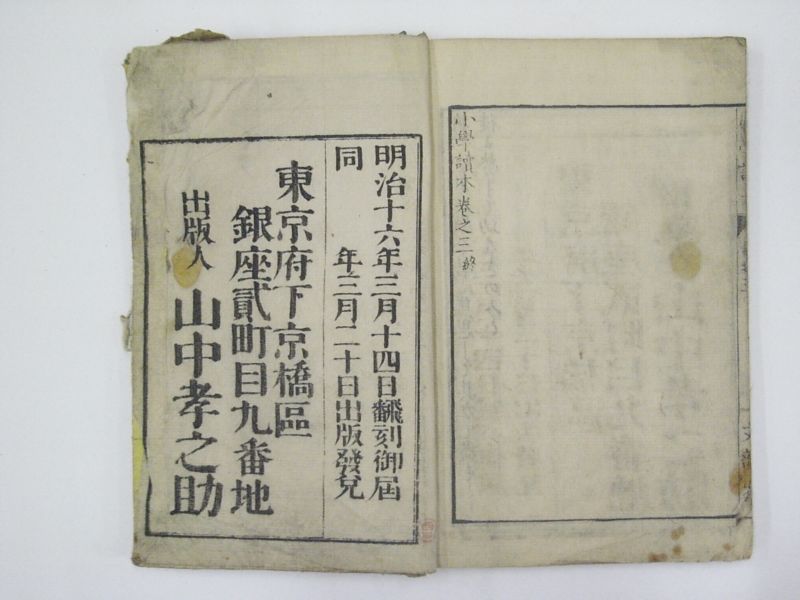 小學讀本卷之三終
明治十六年三月十四日飜刻御屆
同　年三月二十日出版發兌
東京府下京橋區
銀座貳町目九番地
出版人　山中孝之助